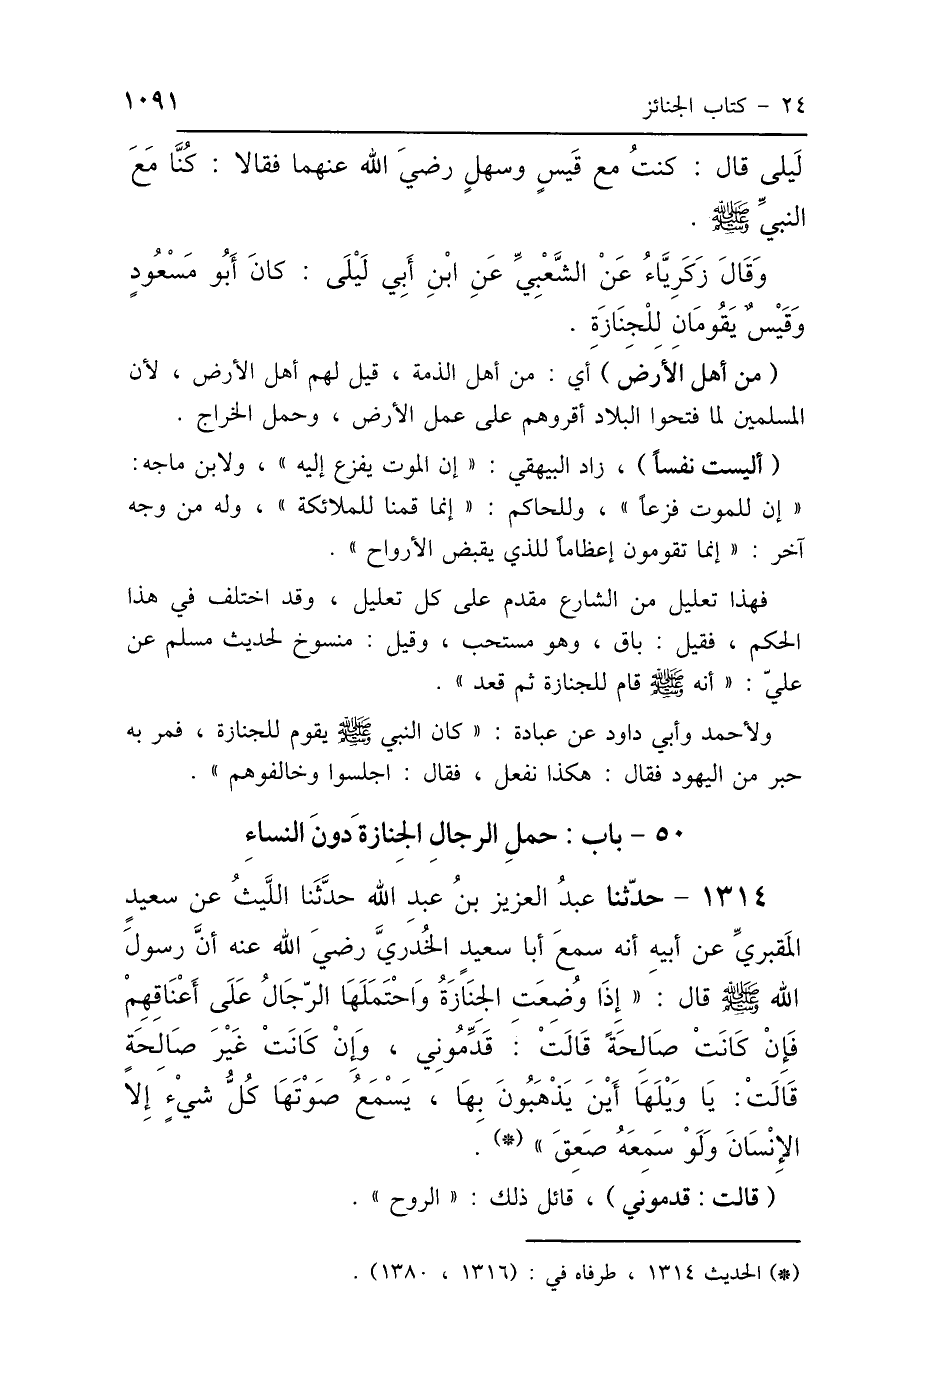 ٢٤ - كتاب الجنائز ١٠٩١
لَيلى قال : كنتُ مع قَيسٍ وسهلٍ رضيَ الله عنهما فقالا : كُنَّا مَعَ
النبيِّ ﷺ .
وَقَالَ زَكَرِيَّاءُ عَنْ الشَّعْبِيِّ عَنِ ابْنِ أَبِي لَيْلَى : كانَ أَبُو مَسْعُودٍ
وَقَيْسٌ يَقُومَانِ لِلْجِنَازَةِ .
( من أهل الأرض ) أي : من أهل الذمة ، قيل لهم أهل الأرض ، لأن
المسلمين لما فتحوا البلاد أقروهم على عمل الأرض ، وحمل الخراج .
( أليست نفساً ) ، زاد البيهقي : « إن الموت يفزع إليه » ، ولابن ماجه:
« إن للموت فزعاً » ، وللحاكم : « إنما قمنا للملائكة » ، وله من وجه
آخر : « إنما تقومون إعظاماً للذي يقبض الأرواح » .
فهذا تعليل من الشارع مقدم على كل تعليل ، وقد اختلف في هذا
الحكم ، فقيل : باق ، وهو مستحب ، وقيل : منسوخ لحديث مسلم عن
عليّ : « أنه ﷺ قام للجنازة ثم قعد » .
ولأحمد وأبي داود عن عبادة : « كان النبي ﷺ يقوم للجنازة ، فمر به
حبر من اليهود فقال : هكذا نفعل ، فقال : اجلسوا وخالفوهم » .
٥٠ - باب : حملِ الرجالِ الجِنازةَ دونَ النساءِ
١٣١٤ - حدّثنا عبدُ العزيز بنُ عبدِ الله حدَّثَنا اللَّيثُ عن سعيدٍ
المَقبريِّ عن أبيهِ أنه سمعَ أبا سعيدٍ الخُدريَّ رضيَ الله عنه أنَّ رسولَ
الله ﷺ قال : « إِذَا وُضِعَتِ الجِنَازَةُ وَاحْتَمَلَهَا الرِّجَالُ عَلَى أَعْنَاقِهِمْ
فَإِنْ كَانَتْ صَالِحَةً قَالَتْ : قَدِّمُونِي ، وَإِنْ كَانَتْ غَيْرَ صَالِحَةٍ
قَالَتْ: يَا وَيْلَهَا أَيْنَ يَذْهَبُونَ بِهَا ، يَسْمَعُ صَوْتَهَا كُلُّ شيْءٍ إِلا
الإِنْسَانَ وَلَوْ سَمِعَهُ صَعِقَ » (*) .
( قالت : قدموني ) ، قائل ذلك : « الروح » .
(*) الحديث ١٣١٤ ، طرفاه في : (١٣١٦ ، ١٣٨٠) .